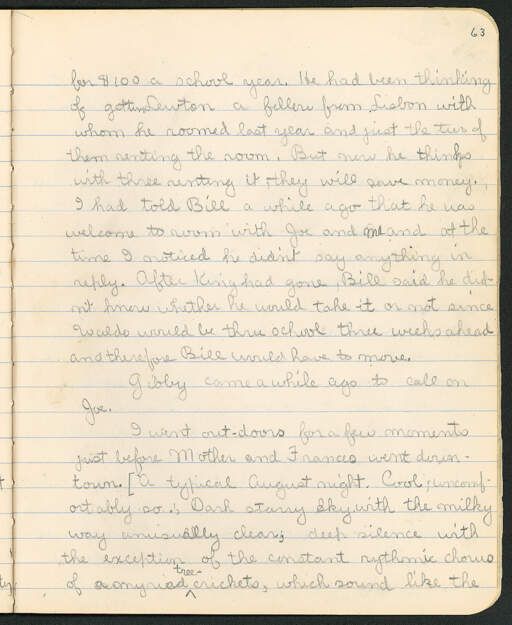 63
for $100 a school year. He had been thinking
of getting Lewton a feller from Lisbon with
whom he roomed last year and just the two of
them renting the room. But now he thinks
with three renting it, they will save money.
I had told Bill a while ago that he was
welcome to room with Joe and me and at the
time I noticed he didn't say anything in
reply. After King had gone, Bill said he did-
n't know whether he would take it or not since
Waldo would be thru school three weeks ahead
and therefore Bill would have to move.
Gibby came a while ago to call on
Joe.
I went out-doors for a few moments
just before Mother and Frances went down-
town. [A typical August night. Cool, uncomf-
ortably so.; Dark starry sky with the milky
way unusually clear; deep silence with
the exception of the constant rythmic chorus
of a myriad tree-crickets, which sound like the